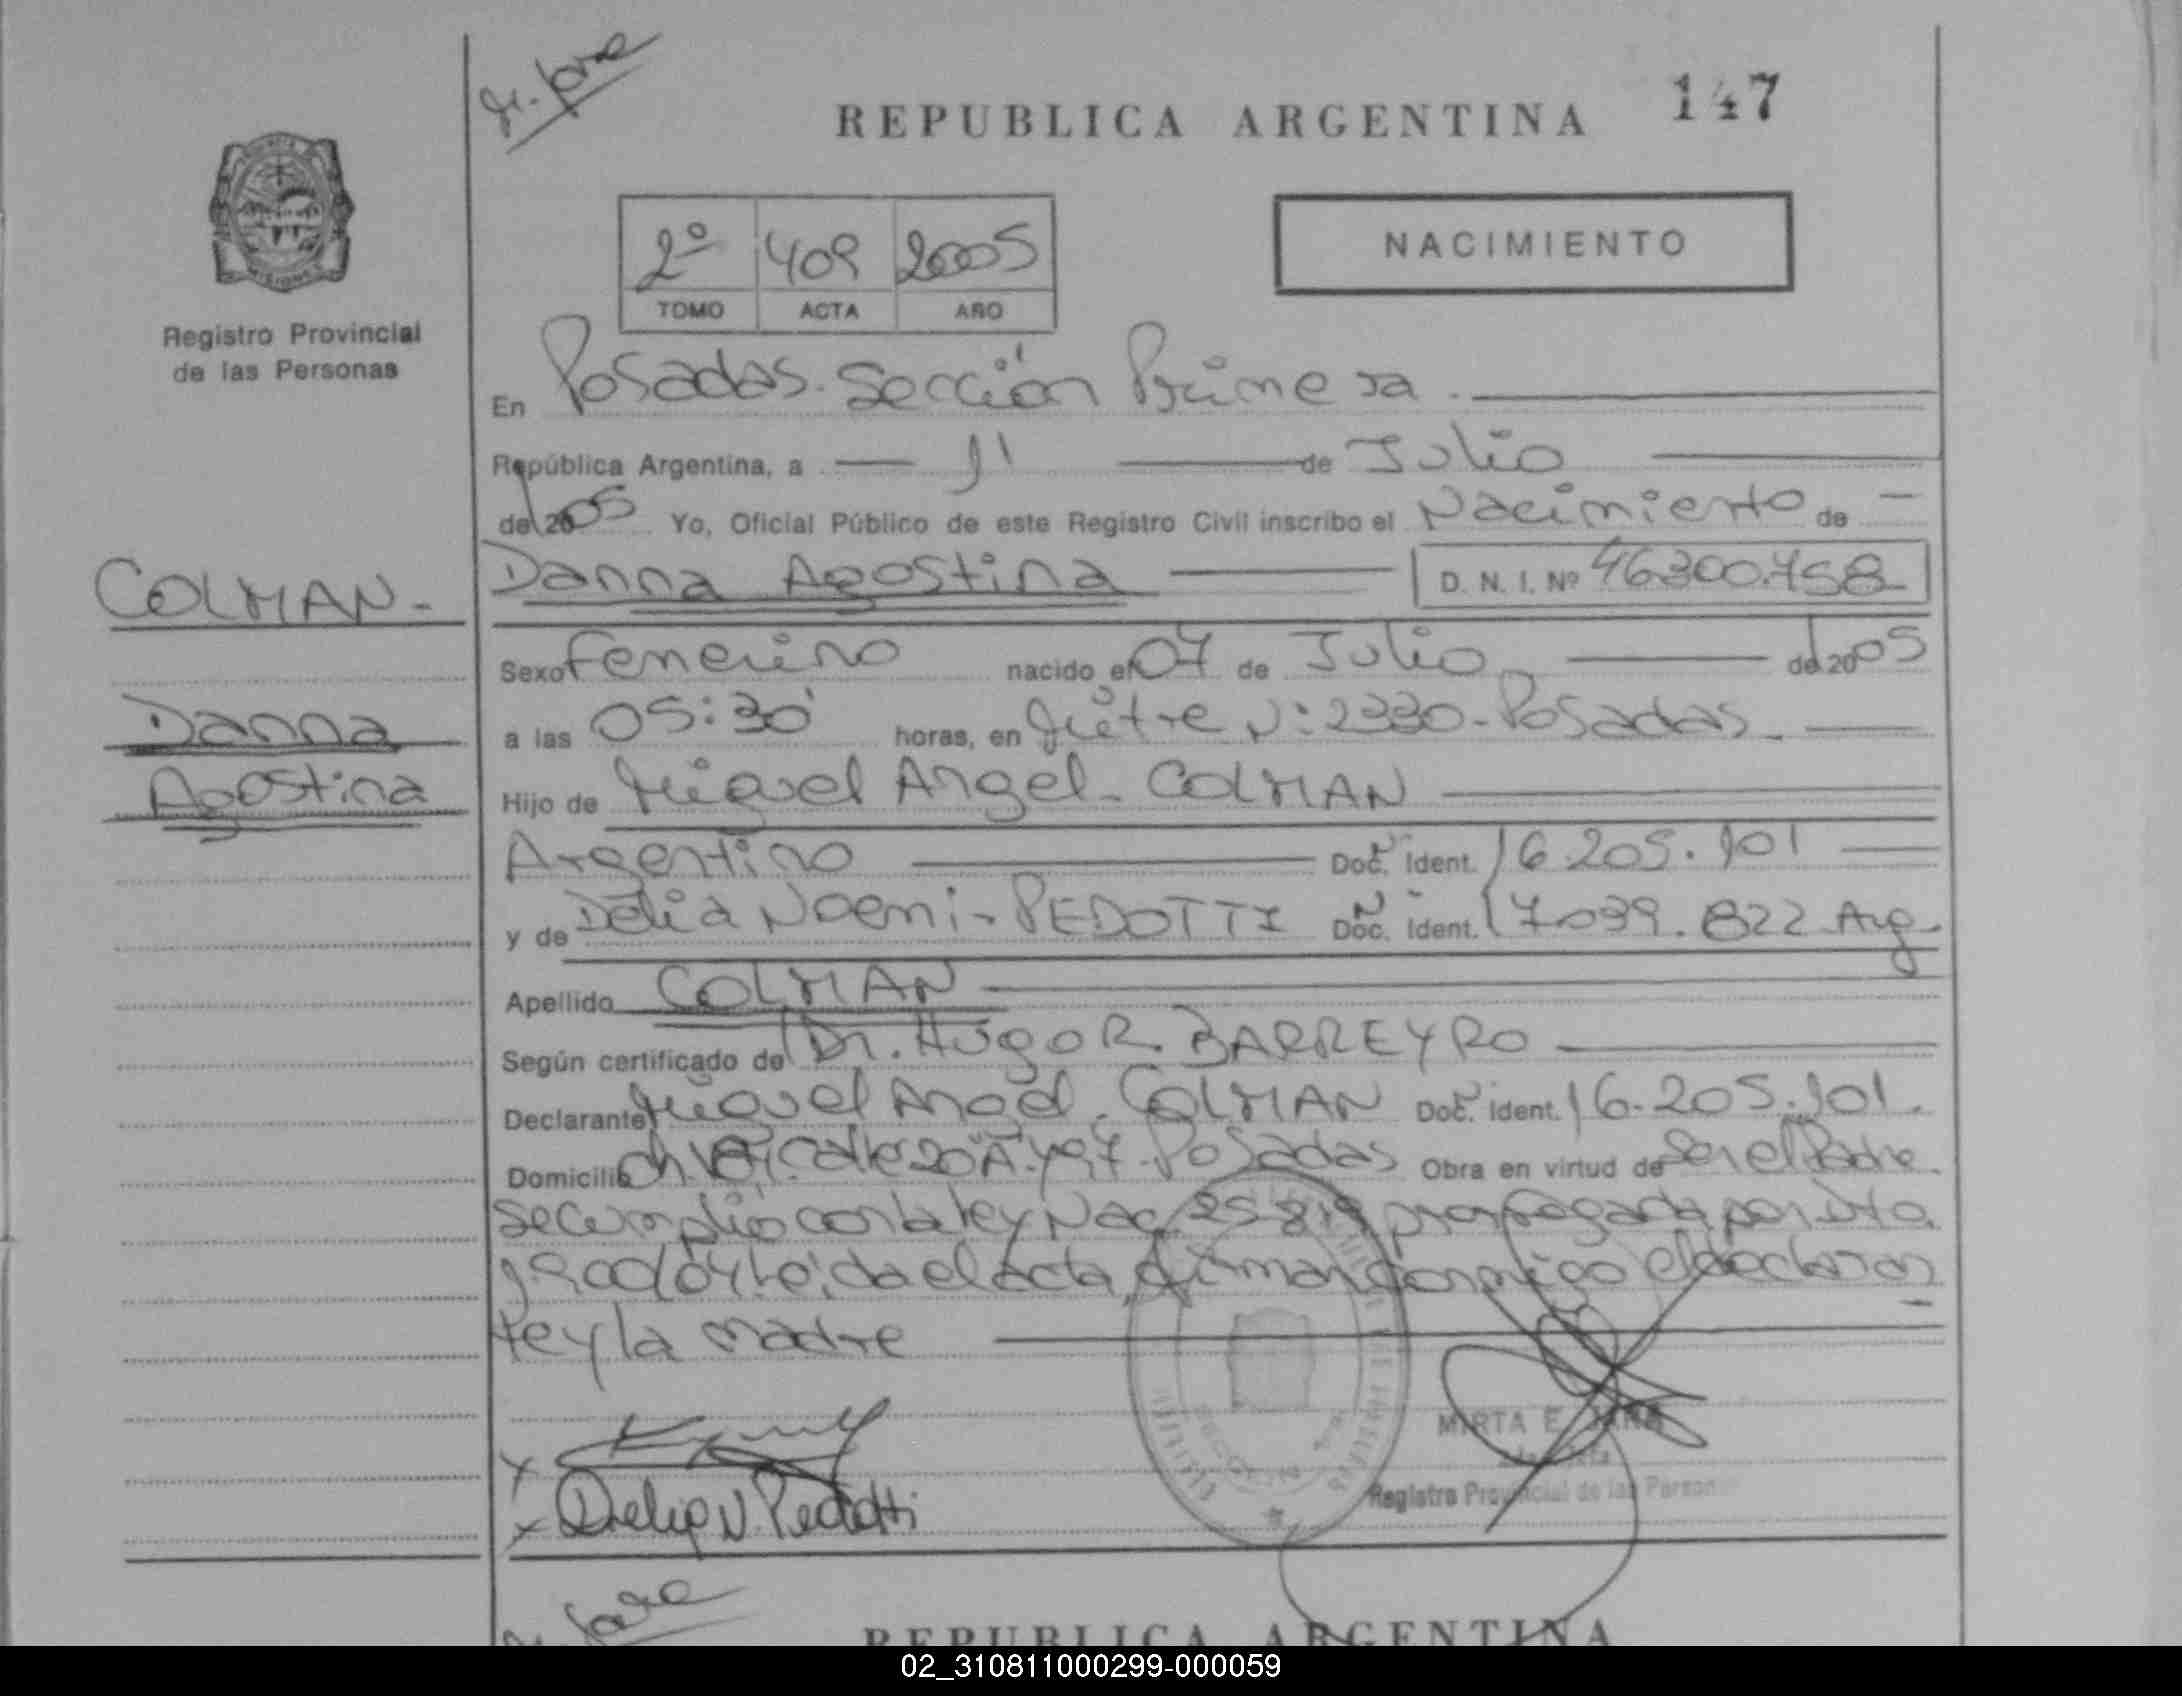 REPUBLICA ARGENTINA 147
2º 409 2005
TOMO ACTA AÑO
NACIMIENTO
Registro Provincial
de las Personas
En Posadas. Sección Primera.
República Argentina, a 11 de Julio
del 2005 Yo, Oficial Público de este Registro Civil inscribo el Nacimiento de
COLMAN- Danna Agostina D. N. I. Nº 46300.458
Sexo Femenino nacido el 07 de Julio del 2005
Danna
a las 05:30 horas, en Mitre N: 2330-Posadas.
Agostina
Hijo de Miguel Angel- COLMAN
Argentino Doc. Ident. 16.205.101
y de Delia Noemi- PEDOTTI Doc. Ident. 17.039.822 Arg.
Apellido COLMAN
Según certificado de Dr. Hugo R. BARREYRO
Declarante Miguel Angel. COLMAN Doc. Ident. 16.205.101.
Domicilio Ch. Calle 20A Posadas Obra en virtud de Ser el Padre.
Se cumplio con la ley Nac 25.819 prorrogada por Dto.
1900/04 Leída el Acta, firman conmigo el declaran
te y la madre
MIRTA E.
Delia N. Pedotti
Registro Provincial de las Person
REPUBLICA ARGENTINA
02_310811000299-000059